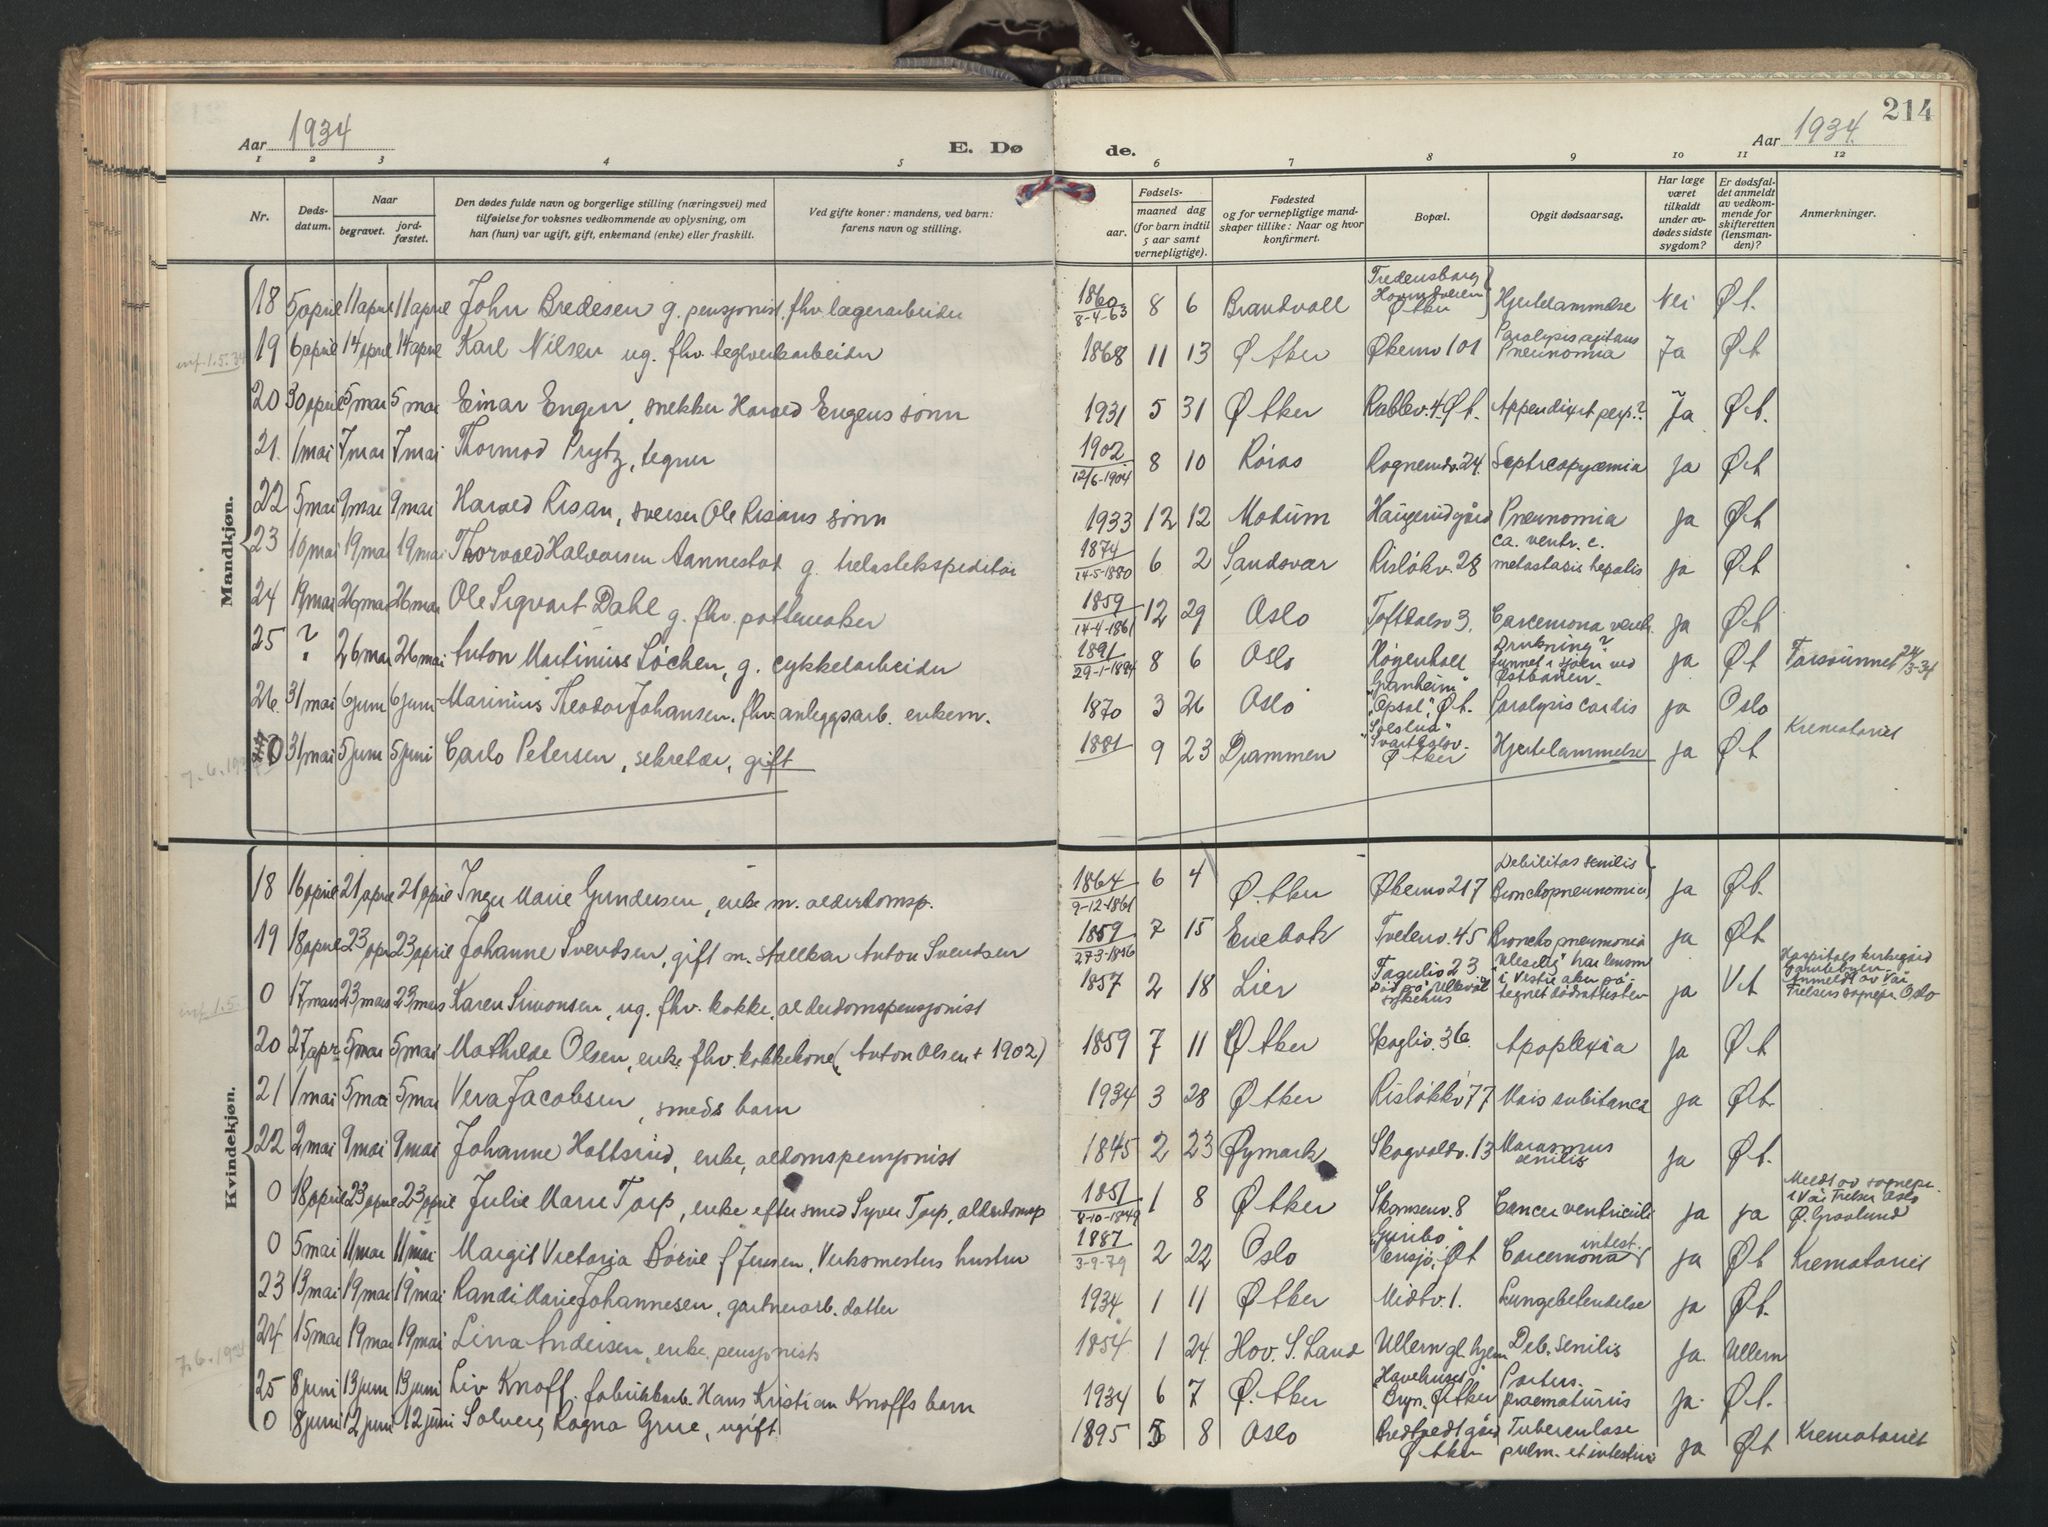 214
Aar 1934 E. Dø de. Aar 1934
1 2 3 4 5 6 7 8 9 10 11 12
Nr. Døds-datum. Naar begravet. jord-fæstet. Den dødes fulde navn og borgerlige stilling (næringsvei) med tilføielse for voksnes vedkommende av oplysning, om han (hun) var ugift, gift, enkemand (enke) eller fraskilt. Ved gifte koner: mandens, ved barn: farens navn og stilling. Fødsels- aar. maaned dag (for barn indtil 5 aar samt vernepligtige). Fødested og for vernepligtige mand-skaper tillike: Naar og hvor konfirmert. Bopæl. Opgit dødsaarsag. Har læge været tilkaldt under av-dødes sidste sygdom? Er dødsfal-det anmeldt av vedkom-mende for skifteretten (lensman-den)? Anmerkninger.
Mandkjøn.
18 5 april 11 april 11 april John Bredesen g. pensjonist, fhv. lagerarbeider 1860 8-4-63 8 6 Brandvoll Hjertelammelse Nei Øt.
19 6 april 14 april 14 april Karl Nilsen ug. fhv. teglverkarbeider 1868 11 13 Ø Aker Økernv 101 Paralysis agitans Pneunomia Ja Øt
20 30 april 5 mai 5 mai Einar Engen, snekker Harald Engens sønn 1931 5 31 Ø Aker Appendixit perf.? Ja Øt.
21. 1 mai 7 mai 7 mai Thormod Prytz, tegner 1902 12/6-1904 8 10 Røros Rognerudv. 24. Septicopyæmia ja Øt
22 5 mai 9 mai 9 mai Harald Risan, sveiser Ole Risans sønn 1933 12 12 Modum Haugerud gård Pneunomia ja Øt
23 10 mai 19 mai 19 mai Thorvald Halvorsen Aannestad g. trelastekspeditør 1874 14-5-1880 6 2 Sandsvær Risløkv. 28 ca. ventr. c. metastasis hepatis ja Øt
24 19 mai 26 mai 26 mai Ole Sigvart Dahl g. fhv. pottemaker 1859 14-4-1861 12 29 Oslo Carcenoma ventr. ja Øt
25 ? 26 mai 26 mai Anton Martinius Løchen, g. cykkelarbeider 1891 29-1-1894 8 6 Oslo Høyenhall Drukning? funnet i sjøen ved Østbanen. ja Øt Forsvunnet 24/3-34
26. 31 mai 6 juni 6 juni Marinius Theodor Johansen, fhv. anleggsarb. enkem. 1870 3 26 Oslo "Granheim" "Opsal", Øt. Paralysis cordis ja Oslo
0 31 mai 5 juni 5 juni Carlo Petersen, sekretær, gift 1881 9 23 Drammen "Solstua" Svartdalsv. Ø Aker Hjertelammelse ja Øt Krematoriet
7.6.1934
Kvindekjøn.
18 16 april 21 april 21 april Inger Marie Gundersen, enke m. alderdomsp. 1864 9-12-1861 6 4 Ø. Aker Økernv 217 Debilitas senilis Bronchopneunomia ja Øt.
19 18 april 23 april 23 april Johanne Svendsen, gift m. stallkar Anton Svendsen 1859 27-3-1856 7 15 Enebak Tvetenv. 45 Broncho pneumonia ja Øt
0 17 mars 23 mars 23 mars Karen Simonsen, ug. fhv. kokke, alderdomspensjonist 1857 2 18 Lier Død på Ullevål sykehus ja Vt Hospitals kirkegård Gamlebyen. Anmeldt av Vår Frelsers sognepr. Oslo
20 27 apr 5 mai 5 mai Mathilde Olsen, enke, fhv. kokkekone (Anton Olsen + 1902) 1859 7 11 Ø Aker Skoglio. 36. Apoplexia ja Øt
21 1 mai 5 mai 5 mai Vera Jacobsen, smeds barn 1934 3 28 Ø Aker Risløkkv 77 Mors subitanea ja Øt.
22 2 mai 9 mai 9 mai Johanne Hattsrud, enke, aldomspensjonist 1845 2 23 Øymark Skogvoldv. 13 Marasmus senilis ja Øt.
0 18 april 23 april 23 april Julie Marie Torp, enke efter smed Syver Torp, alderdomsp 1851 8-10-1849 1 8 Ø Aker Skansenv. 8 Cancer ventriculi ja ja Meldt av sognepr. i Vår Frelser Oslo Ø. Gravlund
0 5 mai 11 mai 11 mai Margit Victoria Børve f Jensen, Verksmesters hustru 1887 3-9-79 2 22 Oslo Ensjø, Øt Carcenoma intest. ja Øt Krematoriet
23 13 mai 19 mai 19 mai Randi Marie Johannesen, gartnerarb. datter 1934 1 11 Ø Aker Midtv. 1. Lungebetendelse ja Øt.
24 15 mai 19 mai 19 mai Lina Andersen, enke, pensjonist 1854 1 24 Hov. S. Land Ullern gl. hjem Deb. senilis ja. Ullern
7.6.1934
25 8 juni 13 juni 13 juni Liv Knoff, fabrikkarb. Hans Kristian Knoffs barn 1934 6 7 Ø. Aker Havehuset Bryn. Ø Aker Partus. praematurus ja. Øt.
0 8 juni 12 juni 12 juni Solveig Ragna Grue, ugift 1895 5 8 Oslo Bredtvedt gård Ø Aker Tuberculose pulm. et intestin ja Øt Krematoriet